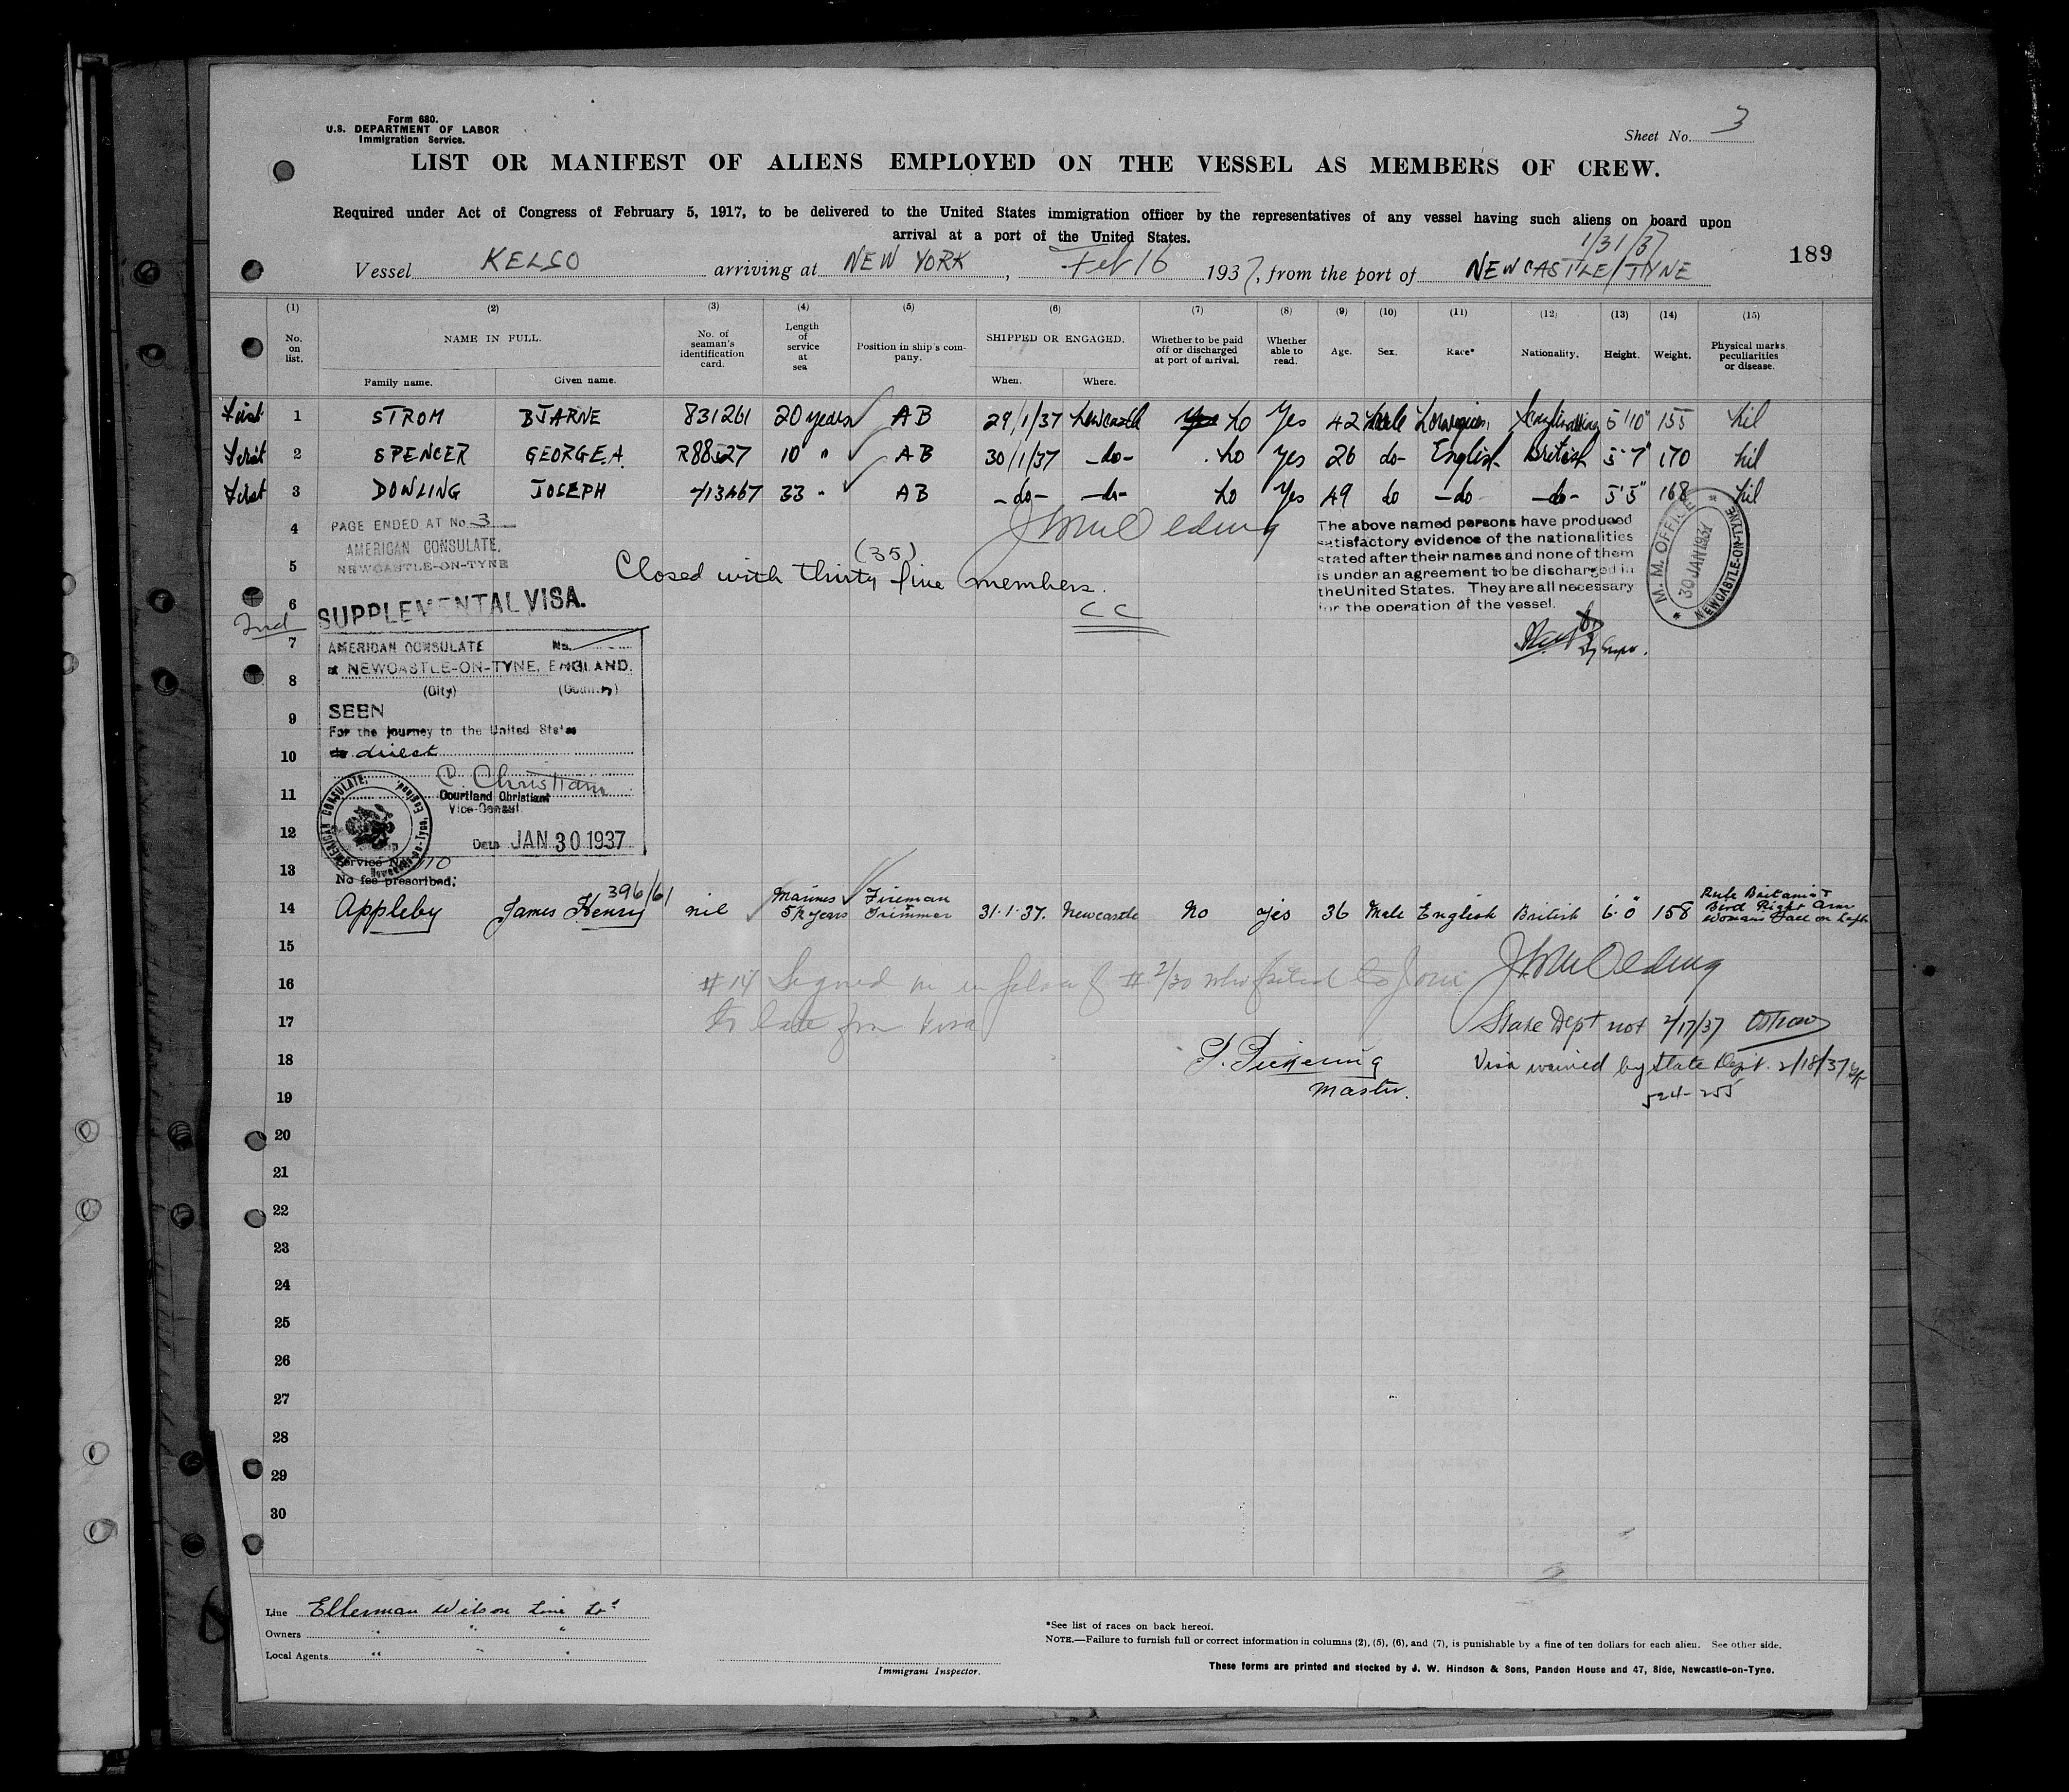 Form 680.
U.S. DEPARTMENT OF LABOR
Immigration Service.
Sheet No. 3
LIST OR MANIFEST OF ALIENS EMPLOYED ON THE VESSEL AS MEMBERS OF CREW.
Required under Act of Congress of February 5, 1917, to be delivered to the United States immigration officer by the representatives of any vessel having such aliens on board upon
arrival at a port of the United States.
1/31/37
189
Vessel KELSO arriving at NEW YORK, Feb 16 1937, from the port of NEWCASTLE/TYNE
(1) (2) (3) (4) (5) (6) (7) (8) (9) (10) (11) (12) (13) (14) (15)
No. on list. NAME IN FULL. Family name. Given name. No. of seaman's identification card. Length of service at sea Position in ship's company. SHIPPED OR ENGAGED. When. Where. Whether to be paid off or discharged at port of arrival. Whether able to read. Age. Sex. Race* Nationality. Height. Weight. Physical marks, peculiarities or disease.
First 1 STROM BJARNE 831261 20 years AB 29/1/37 Newcastle No Yes 42 Male Norwegian 5'10" 155 Nil
First 2 SPENCER GEORGE.A. R88527 10 " AB 30/1/37 -do- No Yes 26 do- English British 5'7" 170 Nil
First 3 DOWLING JOSEPH 713467 33 " AB -do- -do- No Yes 49 do -do- -do- 5'5" 168 Nil
4 PAGE ENDED AT No. 3
AMERICAN CONSULATE,
NEWCASTLE-ON-TYNE
5
(35)
Closed with thirty five members.
CC
The above named persons have produced
satisfactory evidence of the nationalities
stated after their names and none of them
is under an agreement to be discharged in
the United States. They are all necessary
for the operation of the vessel.
M. M. OFFICE
30 JAN 1937
NEWCASTLE-ON-TYNE
6
SUPPLEMENTAL VISA.
2nd
7 AMERICAN CONSULATE No.
at NEWCASTLE-ON-TYNE, ENGLAND.
8 (City) (Country)
9 SEEN
For the journey to the United States
10 direct
C. Christiani
11 Courtland Christiani
Vice Consul
AMERICAN CONSULATE, Newcastle-on-Tyne, England.
12 Date JAN 30 1937
13 Service No. 110
No fee prescribed.
396/61
14 Appleby James Henry nil Marines 5½ years Fireman & Trimmer 31.1.37. Newcastle No yes 36 Male English British 6.0" 158 Rule Britania & Bird Right Arm Womans Face on Left
15
16 #14 Signed on in place of # 2/30 who failed to Join
17 to late for Visa
State Dept not 2/17/37
18 P. Pickering
Master.
Visa waived by State Dept. 2/18/37
19
524-255
20
21
22
23
24
25
26
27
28
29
30
Line Ellerman Wilson Line Ltd
Owners " " "
Local Agents " " "
Immigrant Inspector.
*See list of races on back hereof.
NOTE.—Failure to furnish full or correct information in columns (2), (5), (6), and (7), is punishable by a fine of ten dollars for each alien. See other side.
These forms are printed and stocked by J. W. Hindson & Sons, Pandon House and 47, Side, Newcastle-on-Tyne.